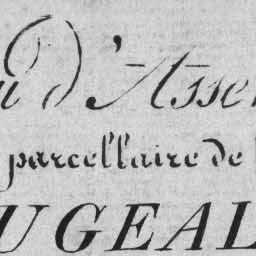 d'Asse
parcellaire de
UGEAL